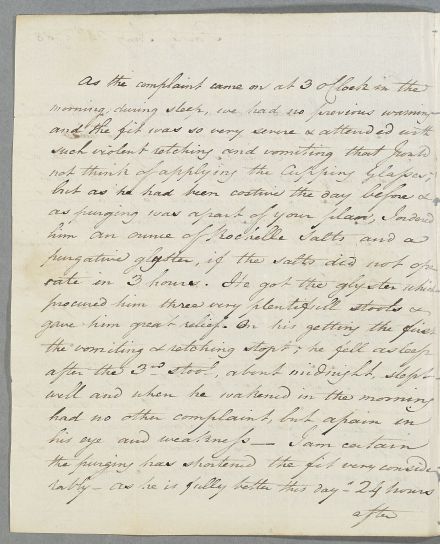 As the complaint came on at 3 oClock in the
morning, during sleep, we had no previous warning
and the fit was so very severe & attended with
such violent retching and vomiting that I could
not think of applying the Cupping Glasses;
but as he had been costive the day before &
as purging was a part of your plan, I ordered
him an ounce of Rochelle Salts and a
purgative glyster, if the salts did not ope
rate in 3 hours. He got the glyster which
procured him three very plentifull stools &
gave him great relief. On his getting the first
the vomiting & retching stopt; he fell asleep
after the 3rd stool, about midnight, slept
well and when he wakened in the morning
had no other complaint, but a pain in
his eye and weakness — I am certain
the purging has shortened the fit very conside
rably — as he is fully better this day - 24 hours
after